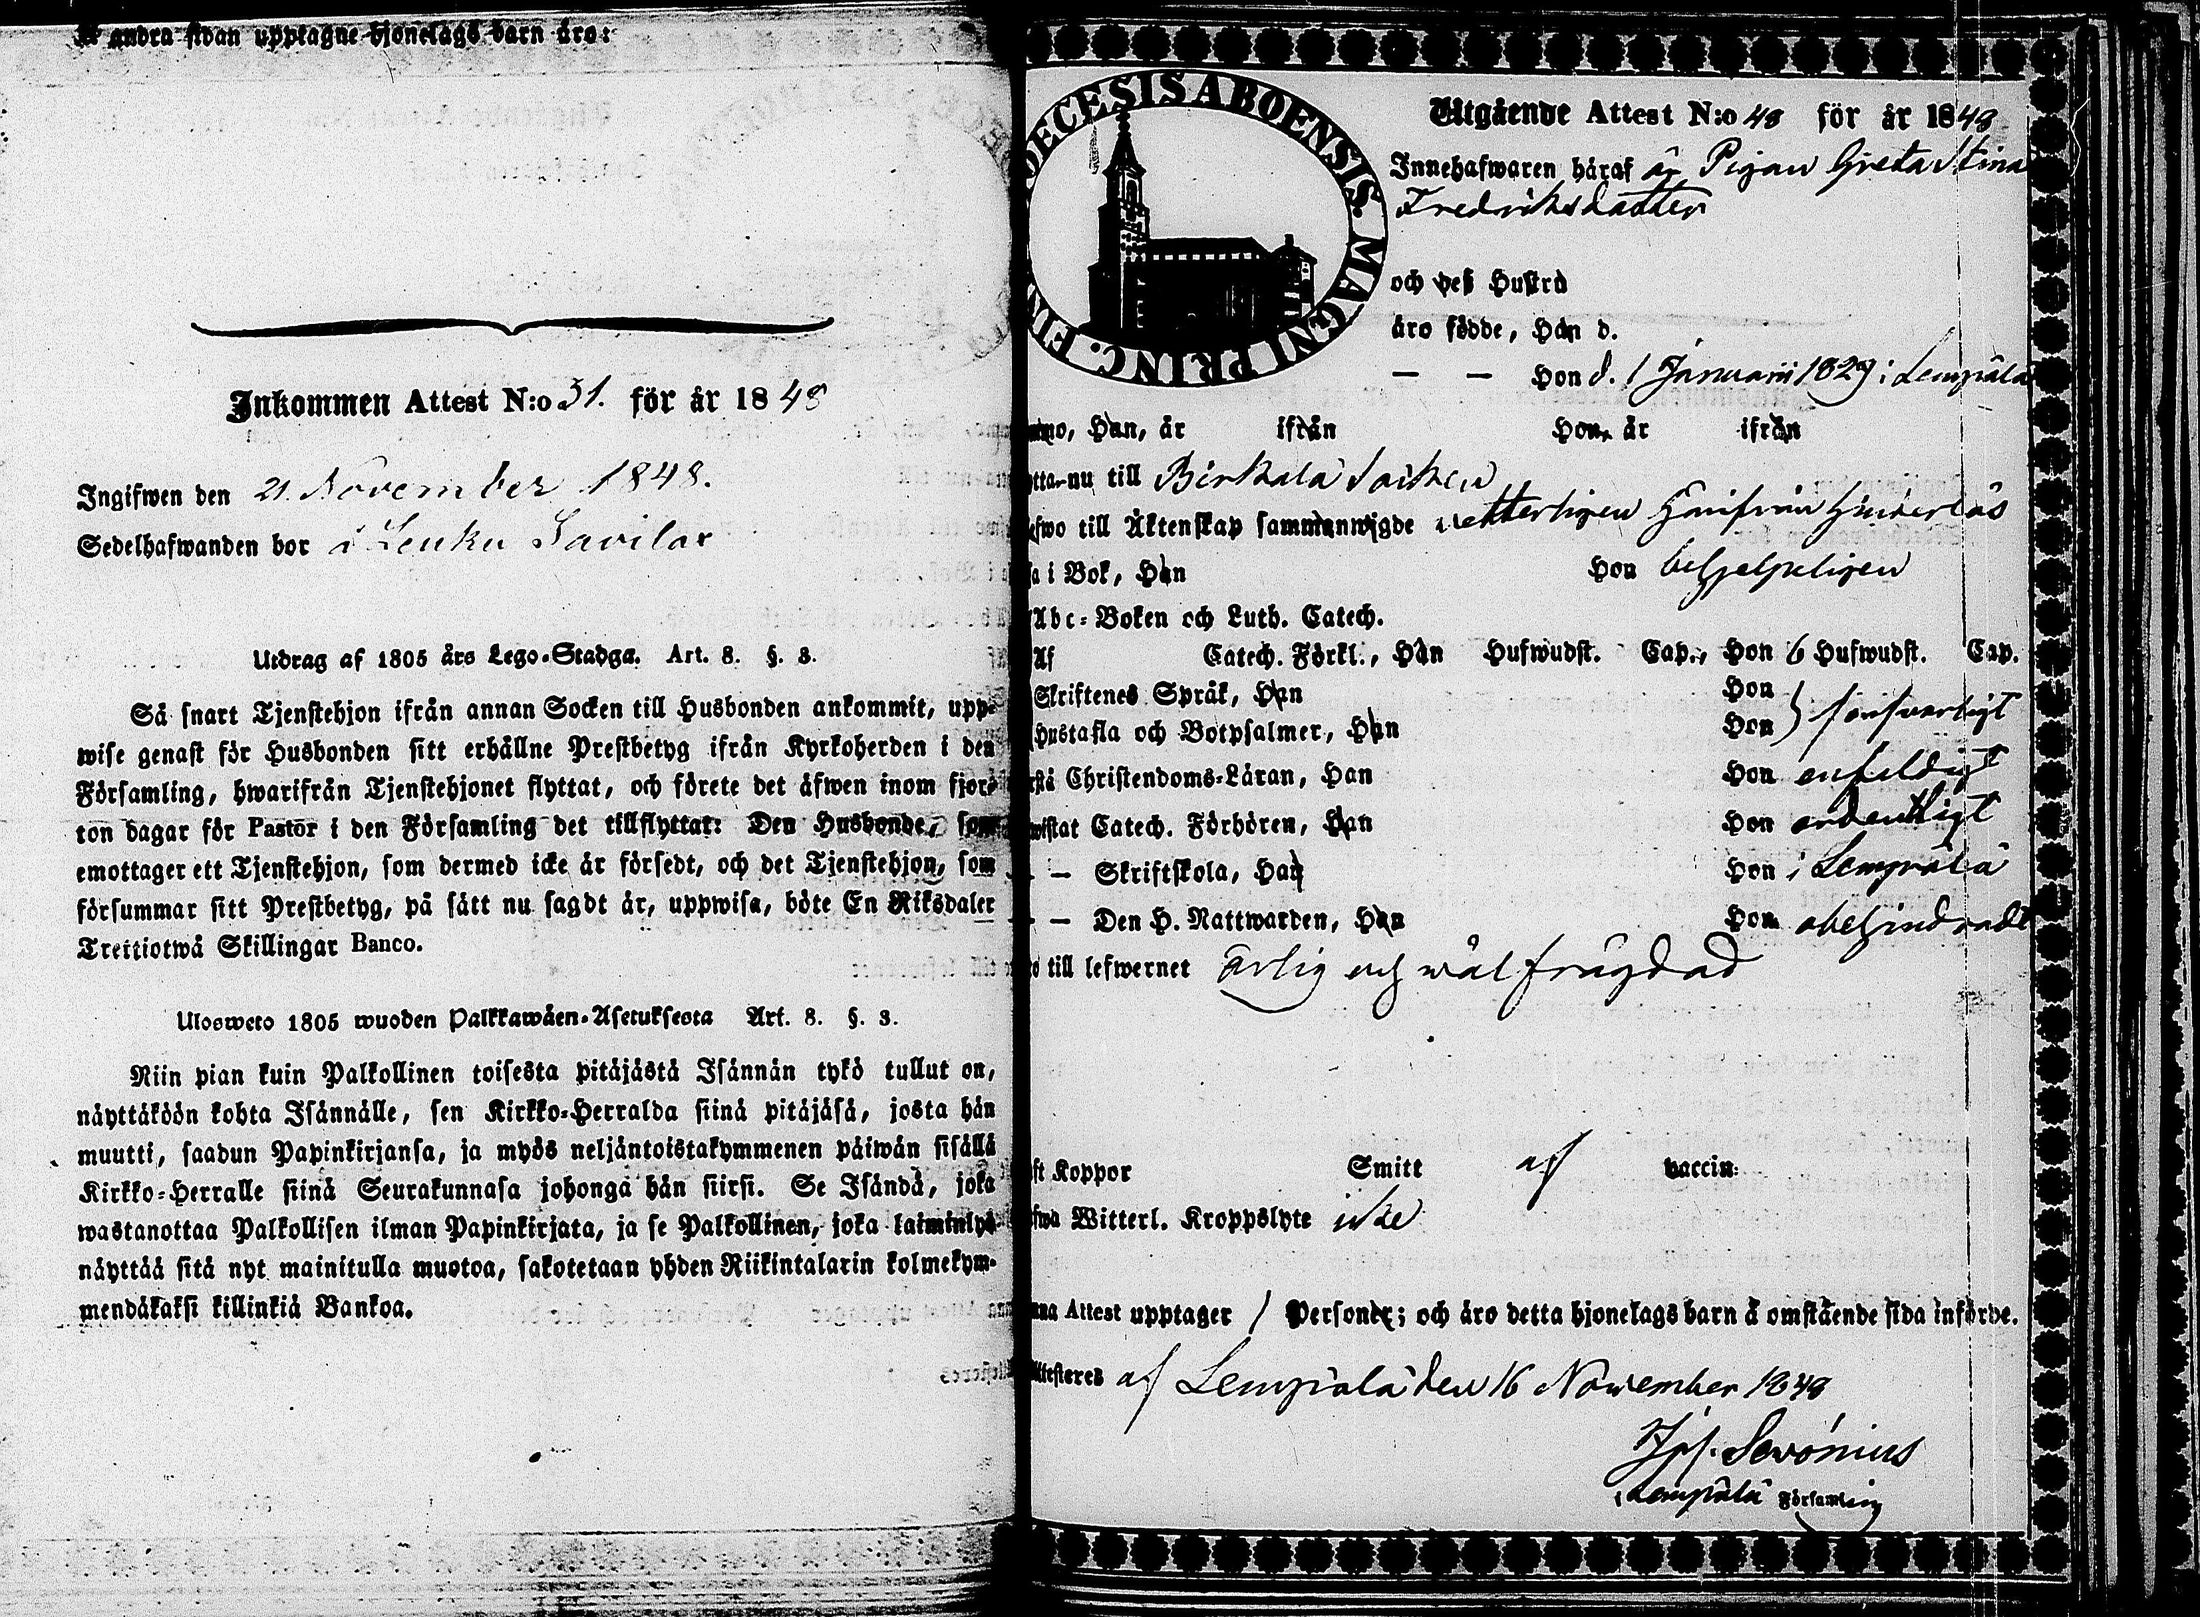 Å andra sidan upptagne hjonelags barn äro:
Inkommen Attest N:o 31. för år 1848
Ingifwen den 21 November 1848.
Sedelhafwanden bor å Leuku Savilax
Utdrag af 1805 års Lego-Stadga. Art. 8. §. 3.
Så snart Tjenstehjon ifrån annan Socken till Husbonden ankommit, upp-
wise genast för Husbonden sitt erhållne Prestbetyg ifrån Kyrkoherden i den
Församling, hwarifrån Tjenstehjonet flyttat, och förete det äfwen inom fjor-
ton dagar för Pastor i den Församling det tillflyttat: Den Husbonde, som
emottager ett Tjenstehjon, som dermed icke är försedt, och det Tjenstehjon, som
försummar sitt Prestbetyg, på sätt nu sagdt är, uppwisa, böte En Riksdaler
Trettiotwå Skillingar Banco.
Ulosweto 1805 wuoden Palkkawäen-Asetuksesta Art. 8. §. 3.
Niin pian kuin Palkollinen toisesta pitäjästä Isännän tykö tullut on,
näyttäköön kohta Isännälle, sen Kirkko-Herralda siinä pitäjäsä, josta hän
muutti, saadun Papinkirjansa, ja myös neljäntoistakymmenen päiwän sisällä
Kirkko-Herralle siinä Seurakunnasa johonga hän siirsi. Se Isändä, joka
wastanottaa Palkollisen ilman Papinkirjata, ja se Palkollinen, joka laiminlyö
näyttää sitä nyt mainitulla muotoa, sakotetaan yhden Riikintalarin kolmekym-
mendäkaksi killinkiä Bankoa.
DIOECESIS ABOENSIS. MAGNI PRINC.
Utgående Attest N:o 48 för år 1848
Innehafwaren häraf är Pigan Greta Stina
Fredriksdatter
och deß Hustru
äro födde, Han d.
— — Hon d. 1 Januarii 1829 i Lempälä
Han, är ifrån Hon, är ifrån
nu till Birkala Socken
till Äktenskap sammanwigde
i Bok, Han Hon behjelpeligen
Abc-Boken och Luth. Catech.
Af Catech. Förkl., Han Hufwudst. Cap., Hon 6 Hufwudst. Cap.
Skriftenes Språk, Han Hon
Hustafla och Botpsalmer, Han Hon försvarligt
Christendoms-Läran, Han Hon enfeldigt
Catech. Förhören, Han Hon ordentligt
— Skriftskola, Han Hon i Lempälä
— — Den H. Nattwarden, Han Hon obehindradt
till lefwernet ärlig och wälfrägdad
Koppor Smitt af vaccin:
Witterl. Kroppslyte icke
Attest upptager 1 Personer; och äro detta hjonelags barn å omstående sida införde.
Attesteres af Lempälä den 16 November 1848
Jos. Sevónius
i Lempälä Församling